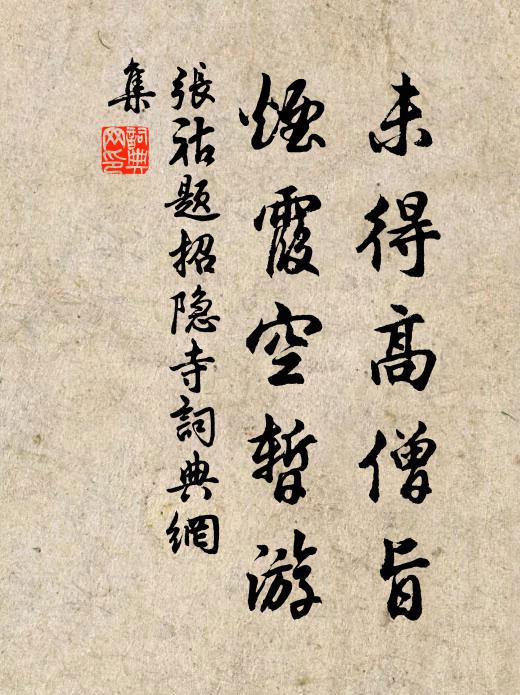 未得高僧旨
煙霞空暫游
張祜題招隐寺詞典網
集
詞典网印